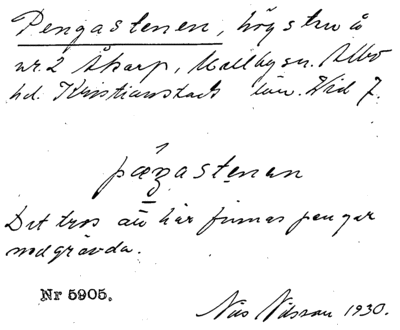 Pengastenen, högsten å
nr. 2 Åkarp, Mellby sn. Albo
hd. Kristianstads län. Vid 7.
pæŋastenen
Det tros att här finnas pengar
nedgrävda.
Nr 5905.
Nils Nilsson 1930.